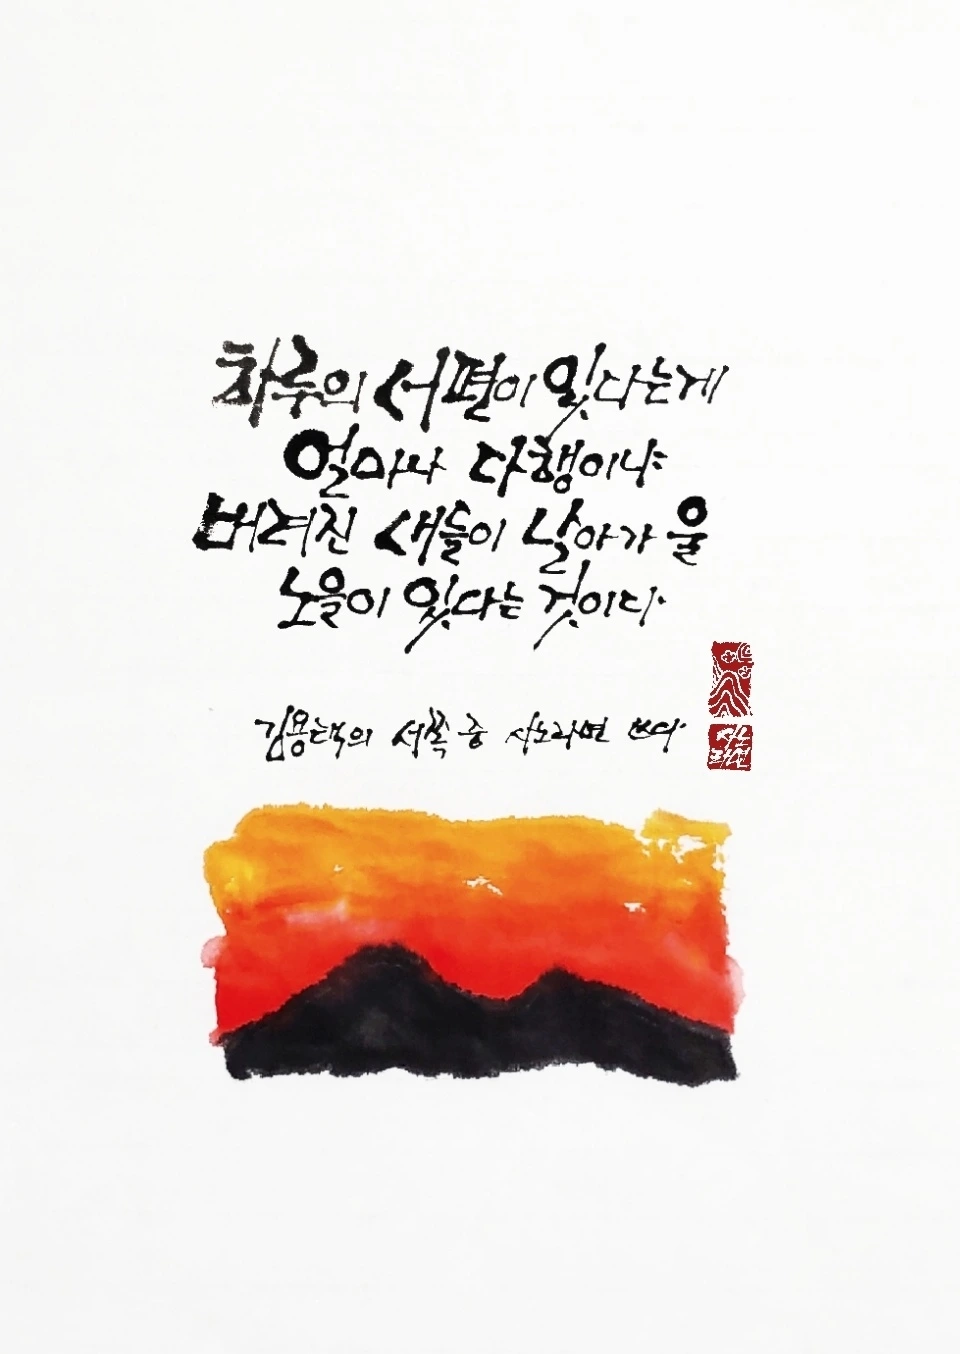 하루의 서편이 있다는게
얼마나 다행이냐
버려진 새들이 날아가 울
노을이 있다는 것이다
김용택의 서쪽 중 시노라면 쓰다